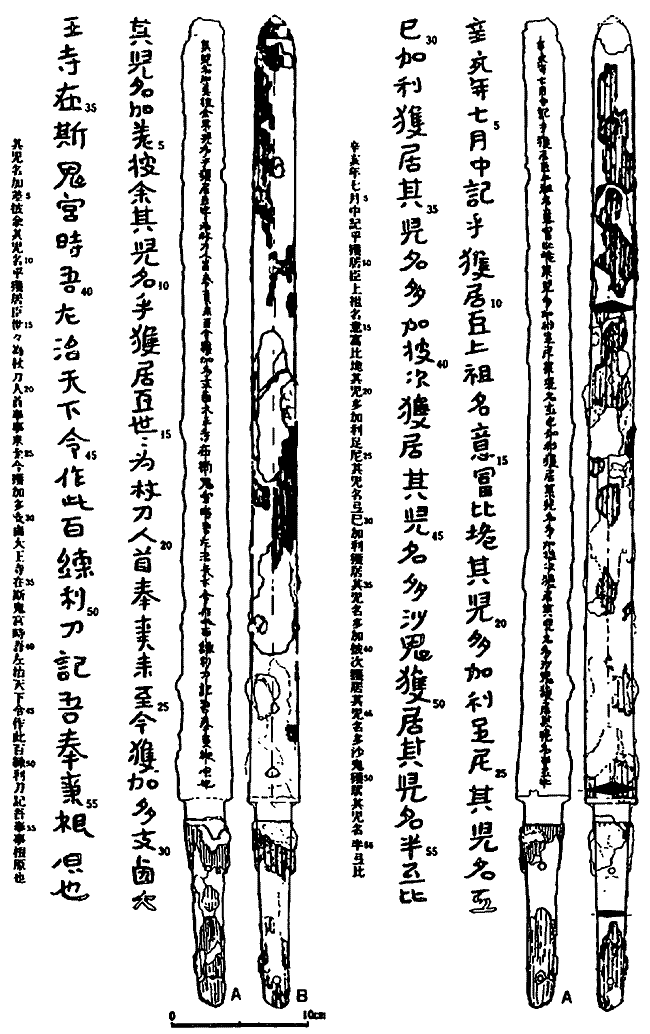 辛亥年七月中記乎獲居臣上祖名意富比垝其児多加利足尼其児名弖
5 10 15 20 25
已加利獲居其児名多加披次獲居其児名多沙鬼獲居其児名半弖比
30 35 40 45 50 55
辛亥年七月中記乎獲居臣上祖名意富比垝其児多加利足尼其児名弖已加利獲居其児名多加披次獲居其児名多沙鬼獲居其児名半弖比
5 10 15 20 25 30 35 40 45 50 55
A
B
A
其児名加差披余其児名乎獲居臣世々為杖刀人首奉事来至今獲加多支鹵大
5 10 15 20 25 30
王寺在斯鬼宮時吾左治天下令作此百練利刀記吾奉事根原也
35 40 45 50 55
其児名加差披余其児名乎獲居臣世々為杖刀人首奉事来至今獲加多支鹵大王寺在斯鬼宮時吾左治天下令作此百練利刀記吾奉事根原也
5 10 15 20 25 30 35 40 45 50 55
0 10cm